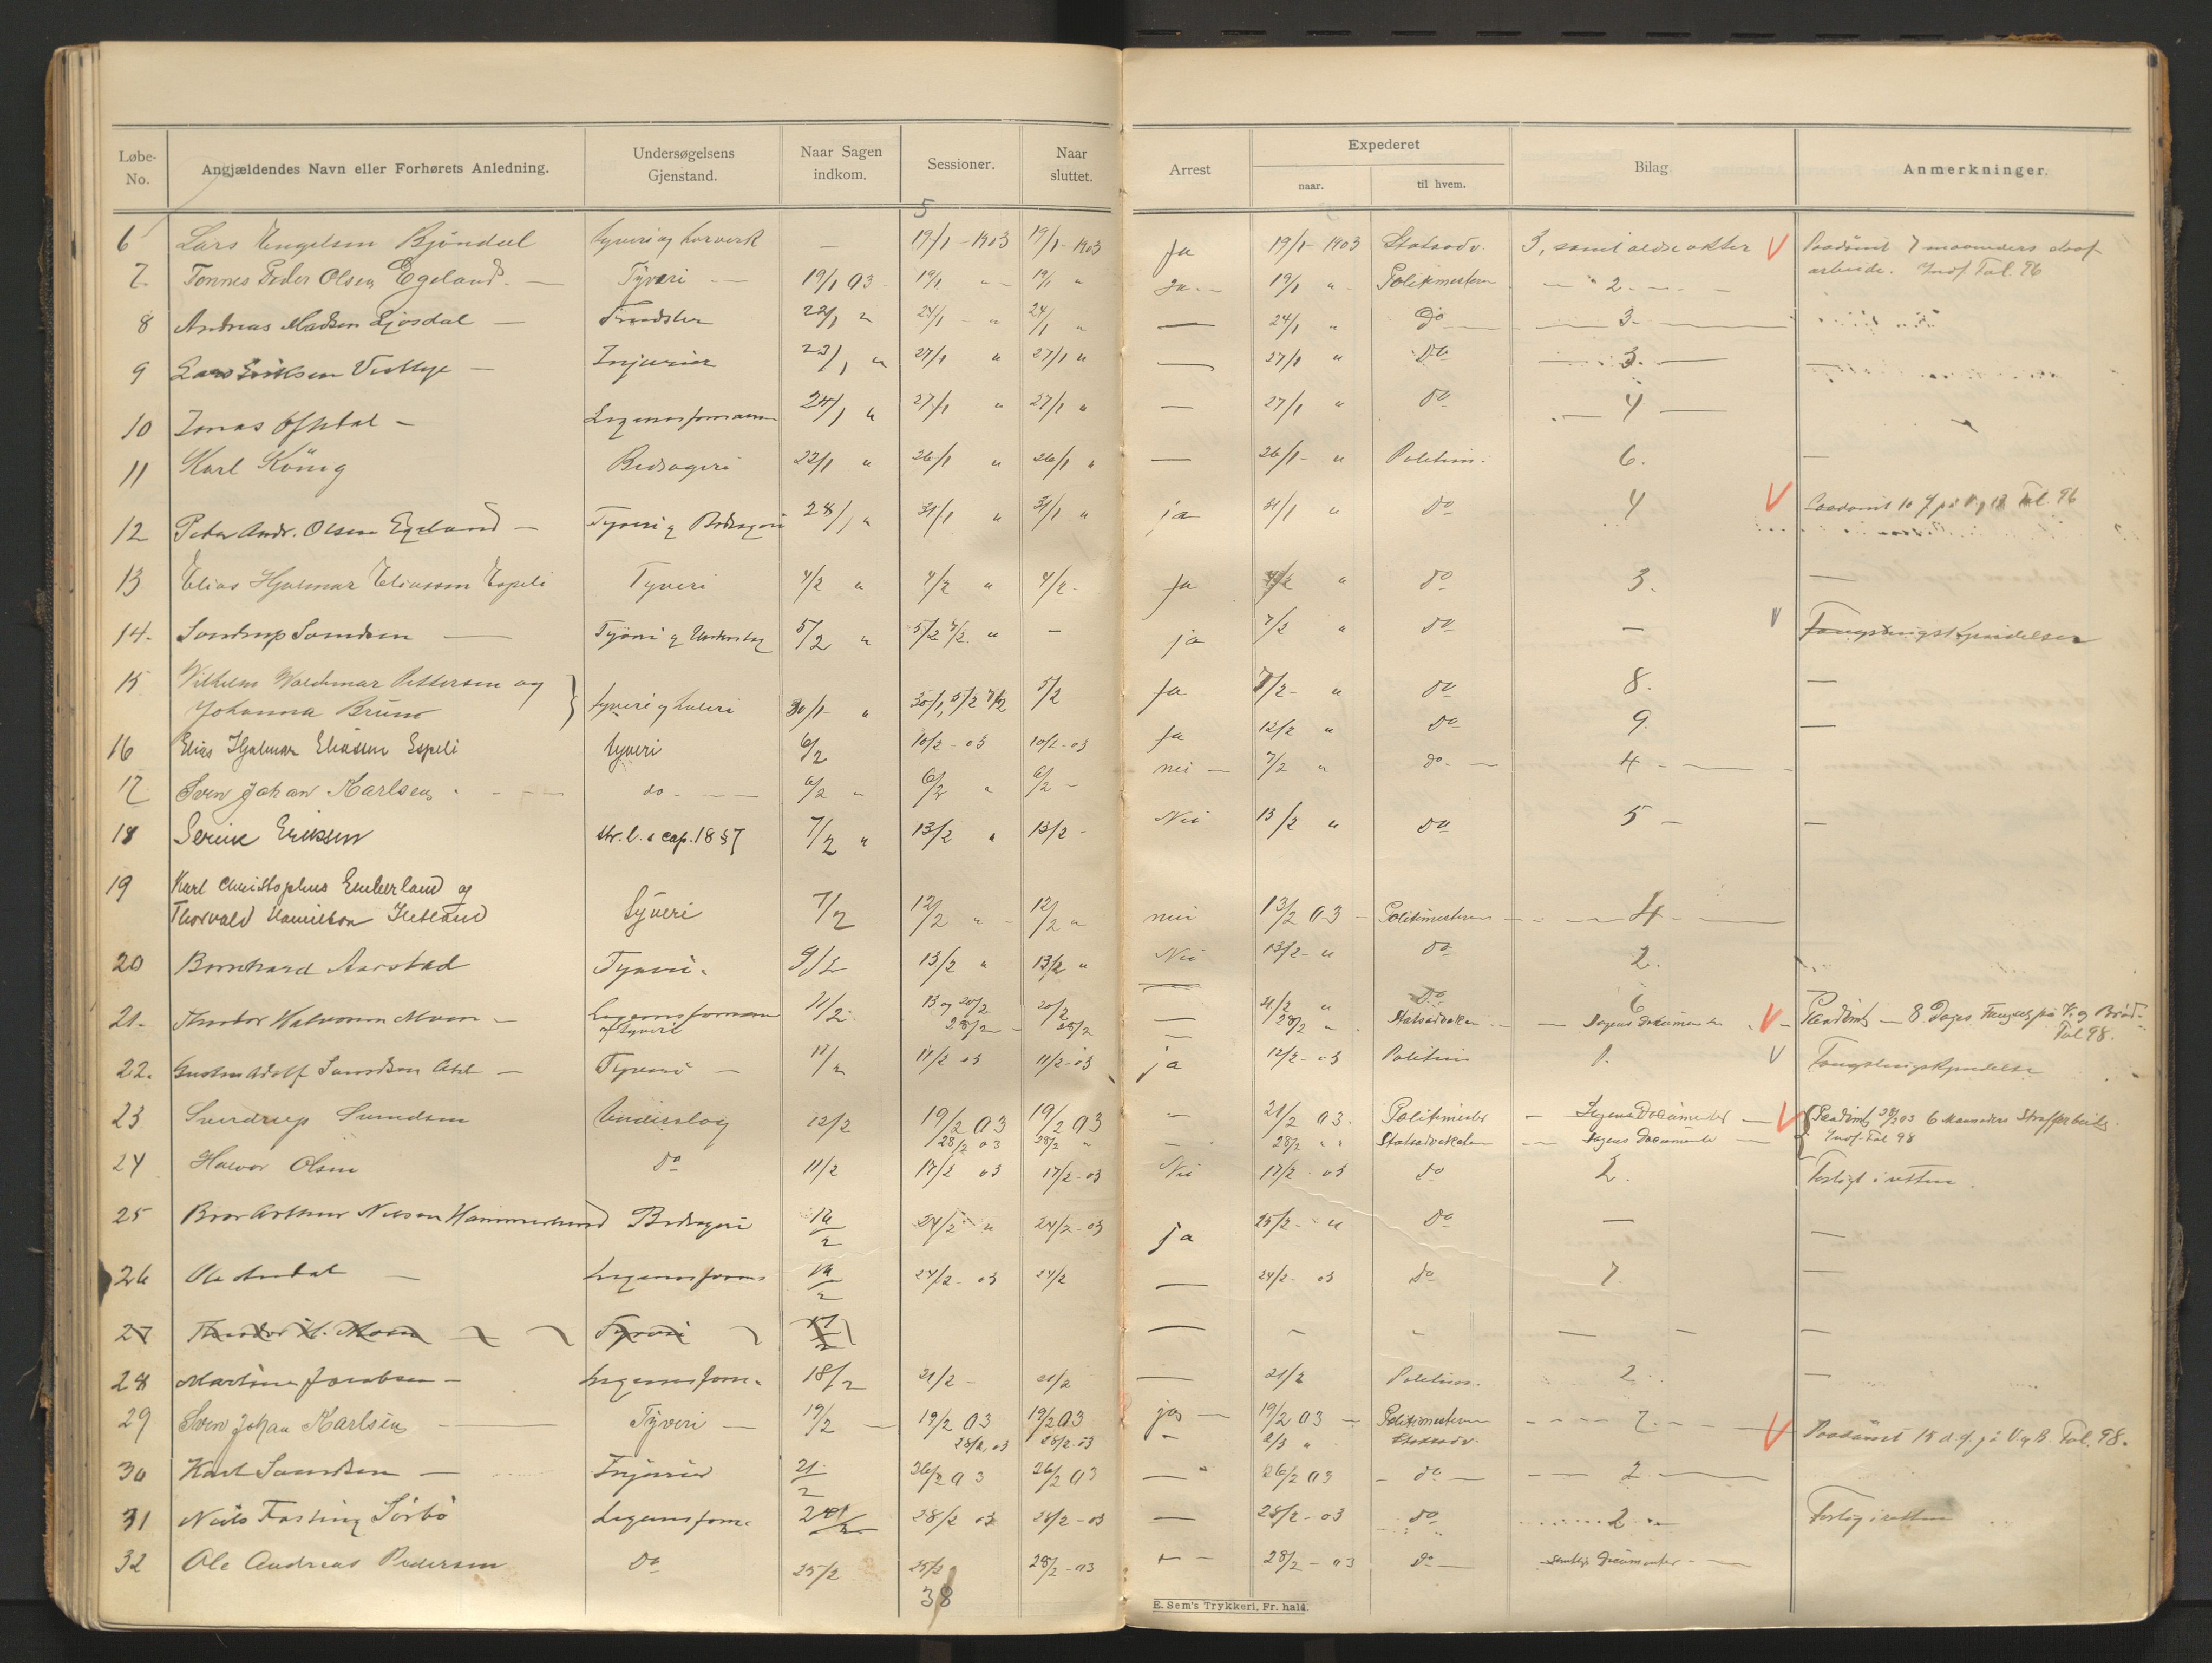 Løbe-No. Angjældendes Navn eller Forhørets Anledning. Undersøgelsens Gjenstand. Naar Sagen indkom. Sessioner. Naar sluttet. Arrest Expederet naar. til hvem. Bilag Anmerkninger.
5
6 Lars Engelsen Bjöndal tyveri og 19/1-1903 19/1-1903 Ja 19/1-1903 Statsadv. 3, samt ældre akter V Paadömt 7 maaneders straf
arbeide. Tal. 96
7. Tönnes Peder Olsen Egeland. Tyveri 19/1 03 19/1 " 19/1 " Ja 19/1 " Politimesteren 2.
8 Andreas Madsen 22/1 " 24/1 " 24/1 " — 24/1 " Do 3.
9 Lars Eriksen Injurier 23/1 " 27/1 " 27/1 " — 27/1 " Do 3.
10 Jonas 24/1 " 27/1 " 27/1 " — 27/1 " do 4
11 Karl König Bedrageri 22/1 " 26/1 " 26/1 " — 26/1 - " Politim. 6. —
12 Peder Andr. Olsen Egeland — Tyveri og Bedrageri 28/1 " 31/1 " 31/1 " ja 31/1 " do 4 V Paadömt 10 Tal. 96
13 Elias Hjalmar Eliassen Espeli Tyveri 4/2 " 4/2 " 4/2 - Ja 4/2 " do 3. —
14. Sverdrup Svendsen — Tyveri og Underslag 5/2 " 5/2 7/2 " — ja 7/2 " do — V Fængslingskjendelse
15 Vilhelm Waldemar Pettersen og
Johanna Bruno } tyveri og hæleri 30/1 - " 30/1, 5/2 7/2 5/2 Ja 7/2 - " do 8. —
16 Elias Hjalmar Eliassen Espeli tyveri 6/2 10/2 - 03 10/2 - 03 Ja 12/2 " do 9. —
17 Sven Johan Karlsen do 6/2 " 6/2 " 6/2 - nei — 7/2 " do. 4
18 Serine Eriksen str. l. s cap. 18 § 7 7/2 " 13/2 " 13/2 - Nei 13/2 " do 5 — —
19 Karl Christophus Emberland og
Thorvald Hamilton Hetland Tyveri 7/2 12/2 " 12/2 " nei 13/2 03 Politimesteren 4
20 Bernhard Aarstad Tyveri. 9/2 13/2 " 13/2 " Nei 13/2 - " do 2.
21. Theodor Halvorsen Moen — og tyveri 11/2 13 og 20/2 20/2 — 21/2 " Do 6
28/2 28/2 28/2 " Statsadvokaten Sagens Dokumenter V Paadömt — 8 Dages Fængsel paa V. og Bröd.
Tal 98.
22. Gustav Adolf Svendsen — Tyveri — 11/2 11/2 03 11/2 - 03 ja 12/2 - 03 Politim V Fængslingskjendelse
23 Sverdrup Svendsen Underslag 12/2 19/2 03 19/2 03 21/2 03. Politimester Sagens Documenter V Paadömt 28/2 03 6 Maaneders Strafarbeide.
28/2 03 28/2 " 28/2 " " Statsadvokaten Sagens Documenter Tal 98
24 Halvor Olsen do 11/2 17/2 03 17/2 - 03 Nei 17/2 - 03 do 2. Forligt i retten.
25 Bror Arthur Nilsson Hammerlund Bedrageri 16/2 24/2 " 24/2 - 03 ja 25/2 - " do — —
26 Ole — 24/2 - 03 24/2 — 24/2 - 03 do 7. —
27 Theodor H. Moen Tyveri 17/2 — — — —
28 Martine Jacobsen — 18/2 21/2 - 21/2 — 21/2 Politim. 2 —
29 Sven Johan Karlsen — Tyveri — 19/2 19/2 03 19/2 03 ja — 19/2 03 Politimesteren 7.
28/2 03 28/2 - 03 2/3 " Statsadv. V Paadömt 15 d. f. på V. og B. Tal. 98.
30 Karl Svendsen — Injurier 21/2 26/2 03 26/2 03 — 26/2 03 do 2
31 Niels Fasting Sörbö 28/2 03 28/2 - 03 — 28/2 - 03 do 2 Forlig i retten
32 Ole Andreas Pedersen Do 25/2 25/2 28/2 - 03 28/2 - 03 do
38
E. Sem's Trykkeri, Fr. hald.